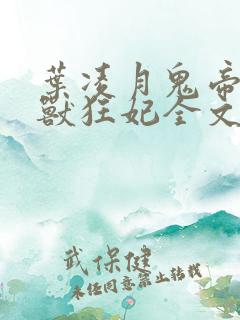 葉凌月鬼帝
獸狂妃全文
武保健
未经同意禁止转载